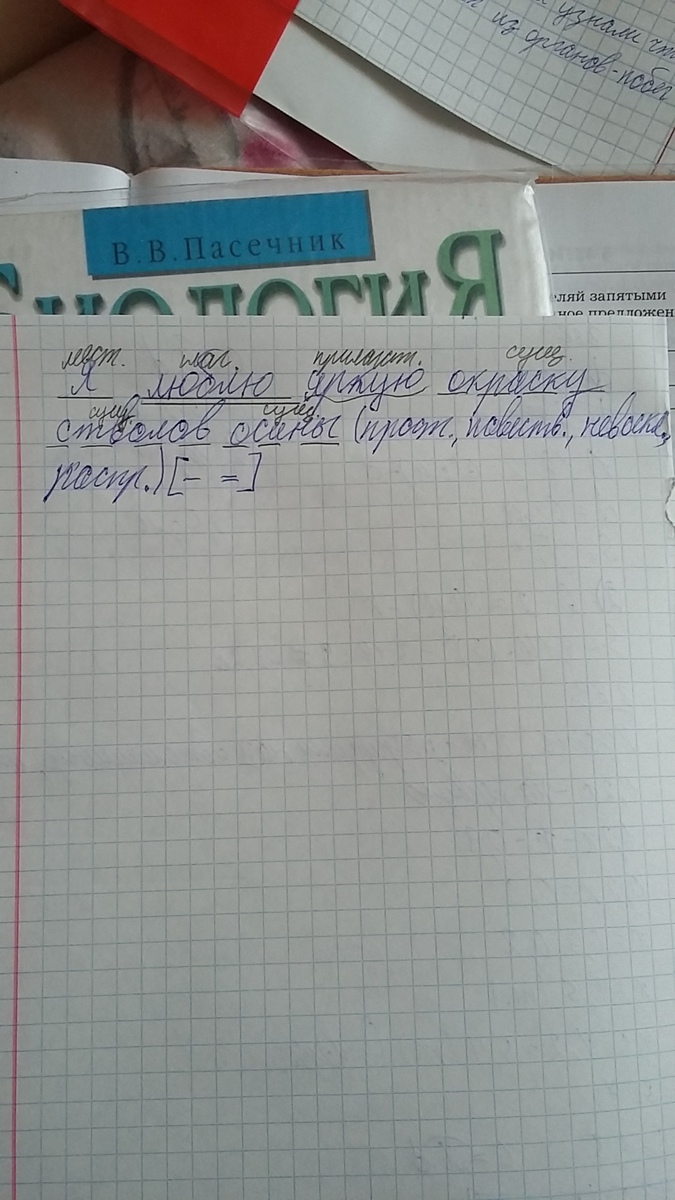 узнали что
из органов-побег
В.В.Пасечник
Биология
еляй запятыми
ное предложен
мест. глаг. прилагат. сущ.
Я люблю яркую окраску
сущ. сущ.
стволов осины (прост., повеств., невоскл.,
распр.) [– =]